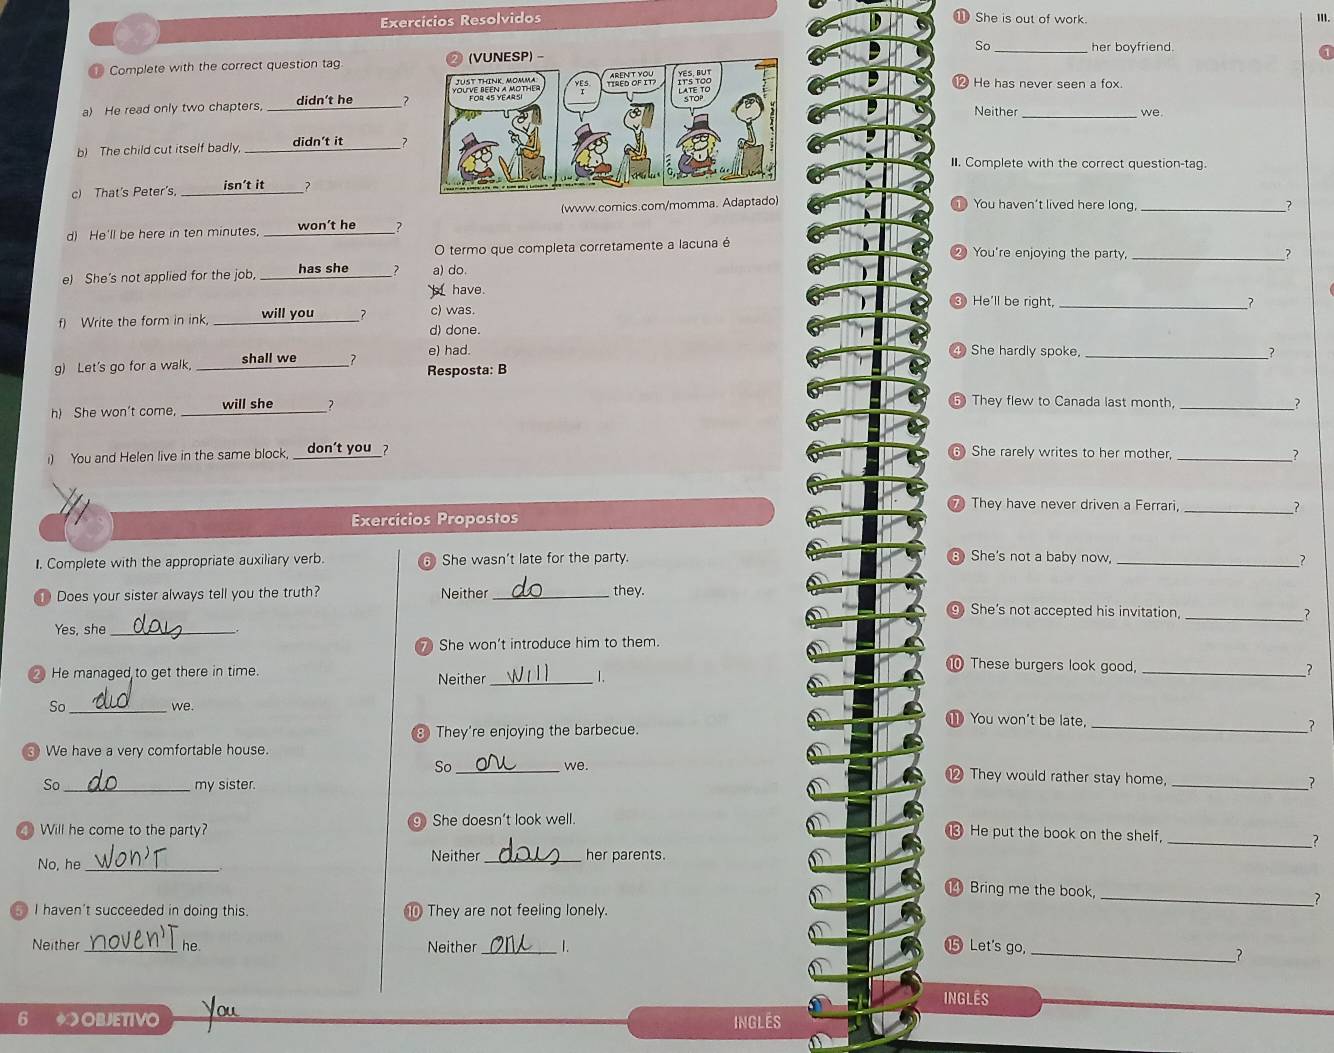 Exercícios Resolvidos
1 Complete with the correct question tag.
a) He read only two chapters, didn't he ?
b) The child cut itself badly, didn't it ?
c) That's Peter's, isn't it ?
d) He'll be here in ten minutes, won't he ?
e) She's not applied for the job, has she ?
f) Write the form in ink, will you ?
g) Let's go for a walk, shall we ?
h) She won't come, will she ?
i) You and Helen live in the same block, don't you ?
2 (VUNESP) –
JUST THINK, MOMMA:
YOU'VE BEEN A MOTHER
FOR 45 YEARS!
YES,
I
AREN'T YOU
TIRED OF IT?
YES, BUT
IT'S TOO
LATE TO
STOP.
(www.comics.com/momma. Adaptado)
O termo que completa corretamente a lacuna é
a) do.
have.
c) was.
d) done.
e) had.
Resposta: B
Exercícios Propostos
I. Complete with the appropriate auxiliary verb.
1 Does your sister always tell you the truth?
Yes, she ____.
2 He managed to get there in time.
So did we.
3 We have a very comfortable house.
So do my sister.
4 Will he come to the party?
No, he won't.
5 I haven't succeeded in doing this.
Neither haven't he.
6 She wasn't late for the party.
Neither do they.
7 She won't introduce him to them.
Neither Will I.
8 They're enjoying the barbecue.
So ____ we.
9 She doesn't look well.
Neither ____ her parents.
10 They are not feeling lonely.
Neither ____ I.
6 OBJETIVO
You
INGLÊS
11 She is out of work.
So ____ her boyfriend.
12 He has never seen a fox.
Neither ____ we.
II. Complete with the correct question-tag.
1 You haven't lived here long, ____?
2 You're enjoying the party, ____?
3 He'll be right, ____?
4 She hardly spoke, ____?
5 They flew to Canada last month, ____?
6 She rarely writes to her mother, ____?
7 They have never driven a Ferrari, ____?
8 She's not a baby now, ____?
9 She's not accepted his invitation, ____?
10 These burgers look good, ____?
11 You won't be late, ____?
12 They would rather stay home, ____?
13 He put the book on the shelf, ____?
14 Bring me the book, ____?
15 Let's go, ____?
INGLÊS
III.
1